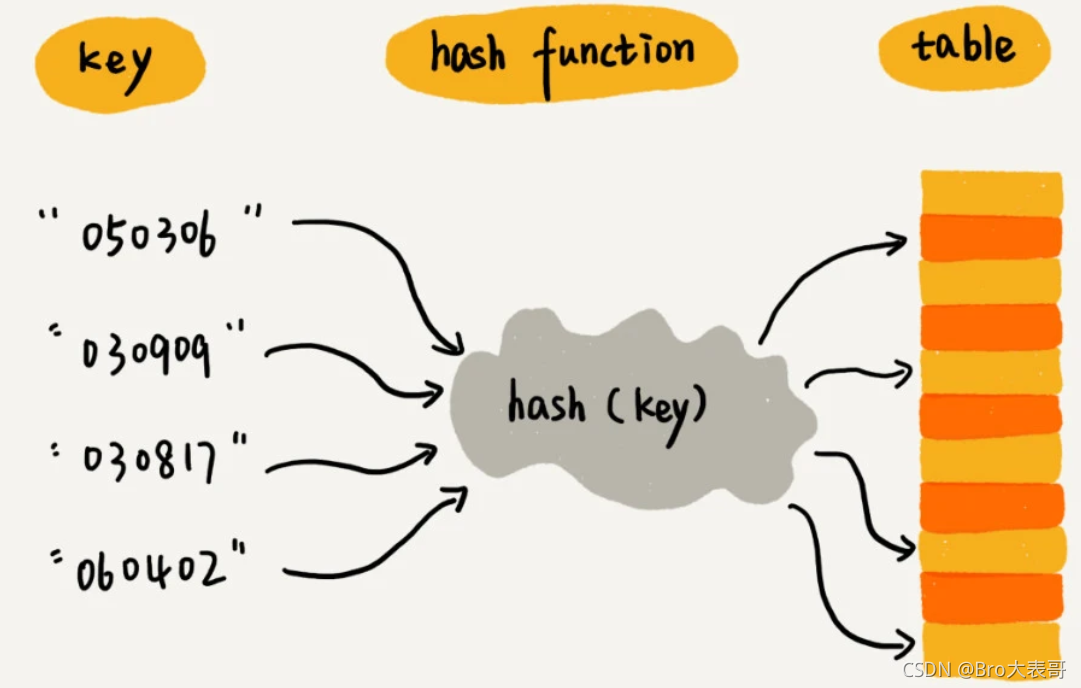 key
hash function
table
"050306"
"030909"
"030817"
"060402"
hash (key)
CSDN @Bro大表哥